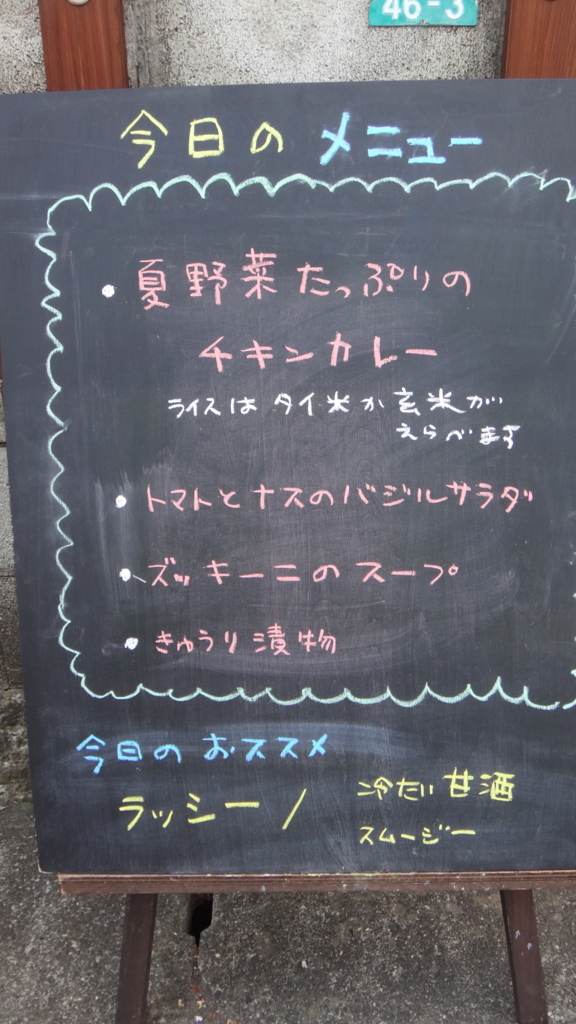 46-3
今日のメニュー
・夏野菜たっぷりの
チキンカレー
ライスはタイ米か玄米が
えらべます
・トマトとナスのバジルサラダ
・ズッキーニのスープ
・きゅうり漬物
今日のおススメ
ラッシー / 冷たい甘酒
スムージー